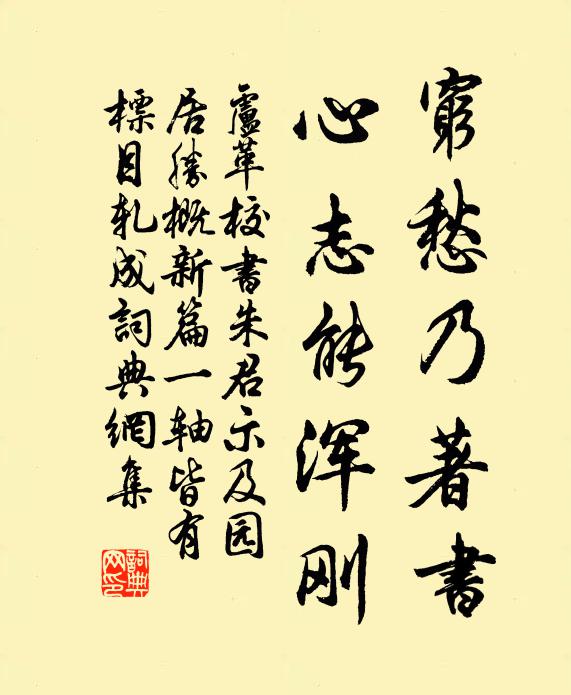 窮愁乃著書
心志能浑刚
盧革校書朱君示及园
居勝概新篇一軸皆有
標目軋成詞典網集
詞典網印